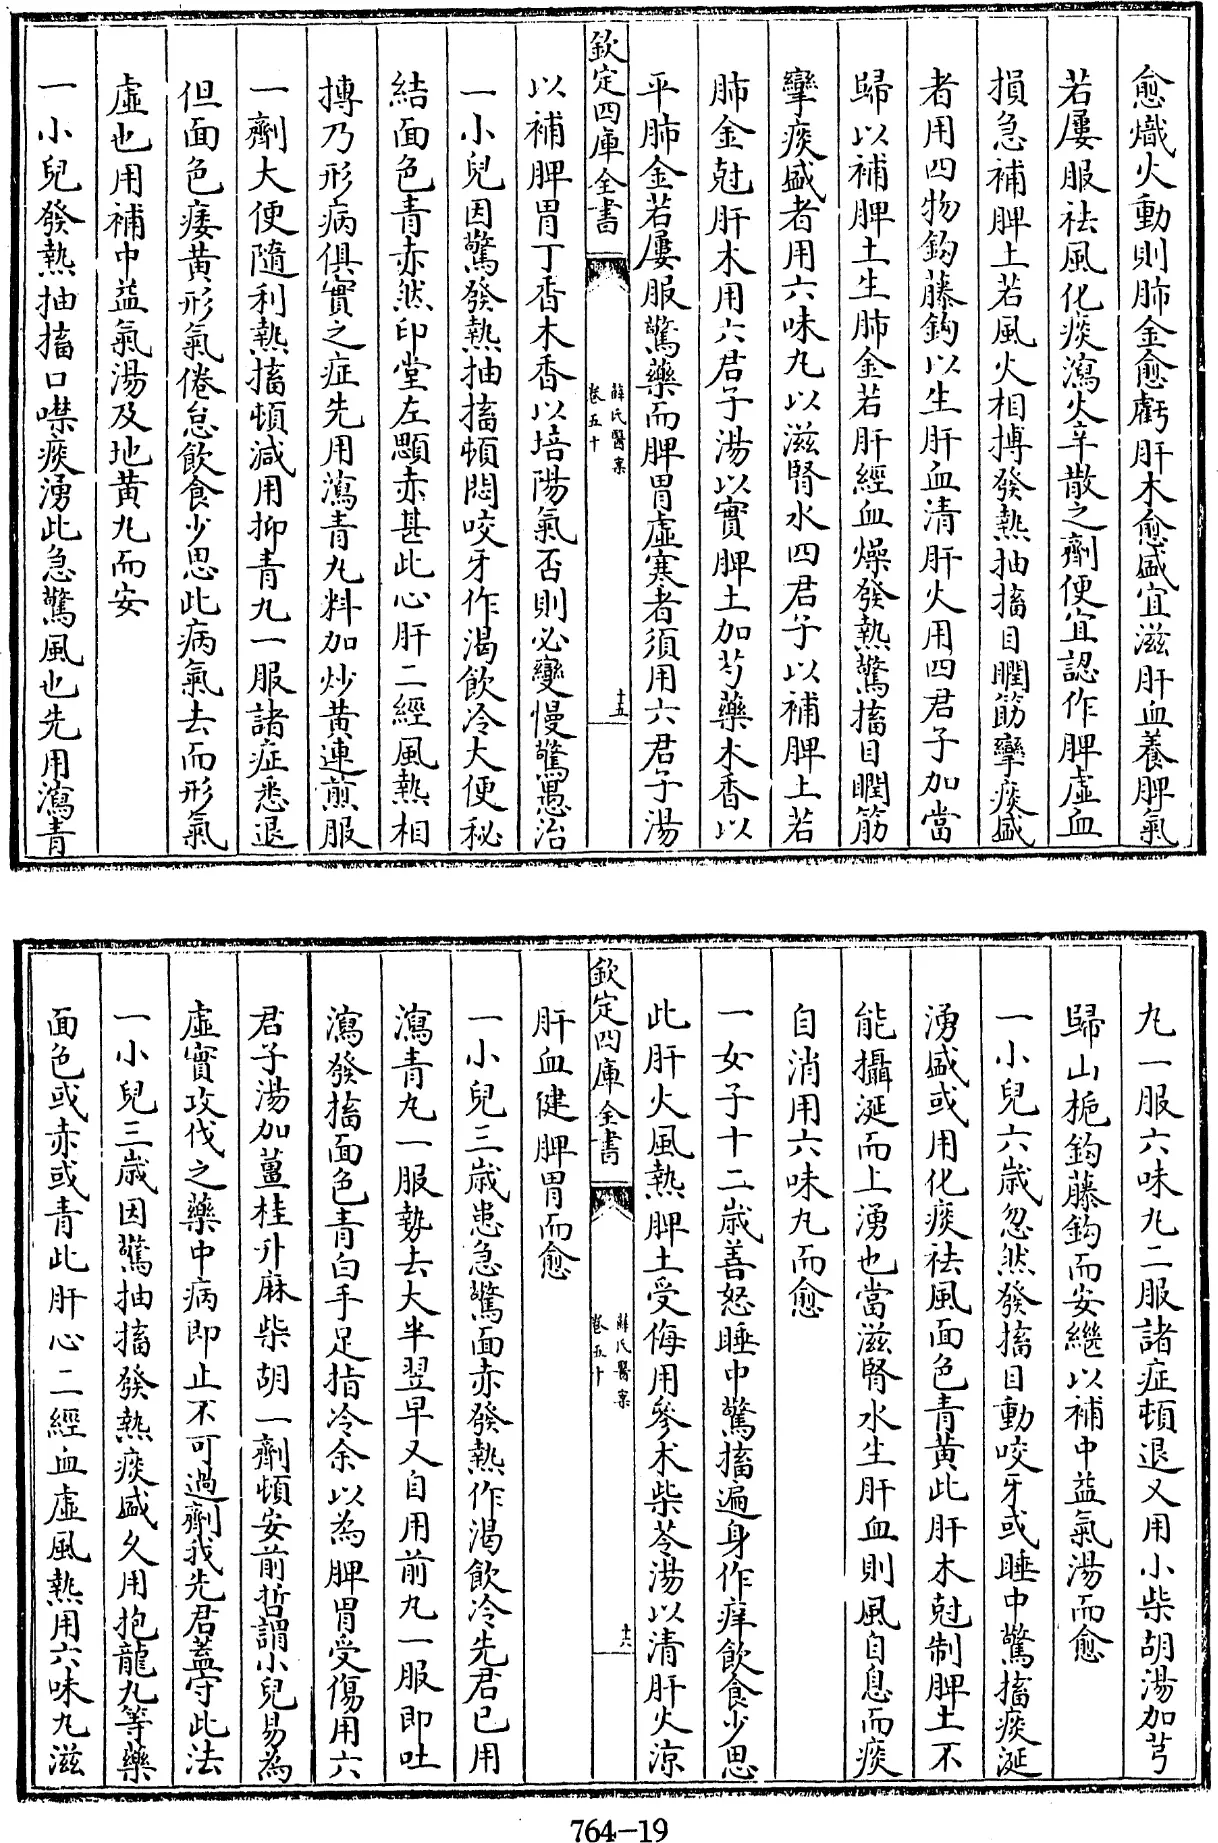 愈熾火動則肺金愈虧肝木愈盛宜滋肝血養脾氣
若屢服祛風化痰瀉火辛散之劑便宜認作脾虛血
損急補脾土若風火相搏發熱抽搐目瞤筋攣痰盛
者用四物鈎藤鈎以生肝血清肝火用四君子加當
歸以補脾土生肺金若肝經血燥發熱驚搐目瞤筋
攣痰盛者用六味丸以滋腎水四君子以補脾土若
肺金尅肝木用六君子湯以實脾土加芍藥木香以
平肺金若屢服驚藥而脾胃虛寒者須用六君子湯
欽定四庫全書
薛氏醫案
卷五十
十五
以補脾胃丁香木香以培陽氣否則必變慢驚愚治
一小兒因驚發熱抽搐頓悶咬牙作渴飲冷大便秘
結面色青赤然印堂左顋赤甚此心肝二經風熱相
搏乃形病俱實之症先用瀉青丸料加炒黃連煎服
一劑大便隨利熱搐頓減用抑青丸一服諸症悉退
但面色痿黃形氣倦怠飲食少思此病氣去而形氣
虛也用補中益氣湯及地黃丸而安
一小兒發熱抽搐口噤痰湧此急驚風也先用瀉青
丸一服六味丸二服諸症頓退又用小柴胡湯加芎
歸山梔鈎藤鈎而安繼以補中益氣湯而愈
一小兒六歲忽然發搐目動咬牙或睡中驚搐痰涎
湧盛或用化痰祛風面色青黃此肝木尅制脾土不
能攝涎而上湧也當滋腎水生肝血則風自息而痰
自消用六味丸而愈
一女子十二歲善怒睡中驚搐遍身作痒飲食少思
此肝火風熱脾土受侮用參术柴苓湯以清肝火涼
欽定四庫全書
薛氏醫案
卷五十
十六
肝血健脾胃而愈
一小兒三歲患急驚面赤發熱作渴飲冷先君已用
瀉青丸一服勢去大半翌早又自用前丸一服即吐
瀉發搐面色青白手足指冷余以為脾胃受傷用六
君子湯加薑桂升麻柴胡一劑頓安前哲謂小兒易為
虛實攻伐之藥中病即止不可過劑我先君蓋守此法
一小兒三歲因驚抽搐發熱痰盛久用抱龍丸等藥
面色或赤或青此肝心二經血虛風熱用六味丸滋
764-19